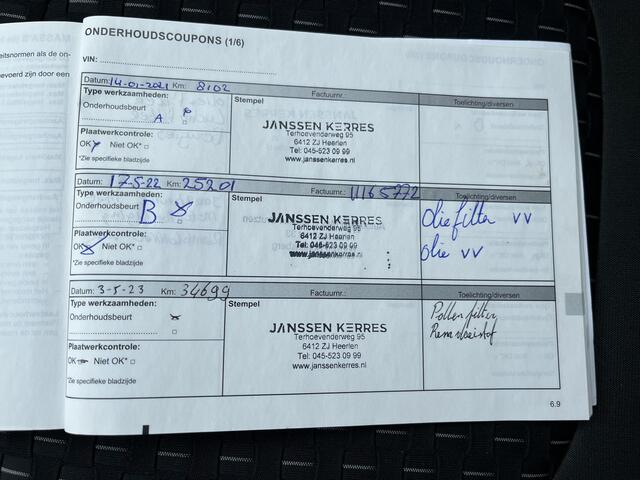 eitsnormen als de on-
evoerd zijn door een
ONDERHOUDSCOUPONS (1/6)
VIN:
Datum: 14-01-2021 Km: 8102 Factuurnr.: Toelichting/diversen
Type werkzaamheden:
Onderhoudsbeurt
A
Plaatwerkcontrole:
OK Niet OK*
*Zie specifieke bladzijde
Stempel
JANSSEN KERRES
Terhoevenderweg 95
6412 ZJ Heerlen
Tel: 045-523 09 99
www.janssenkerres.nl
Datum: 17-5-22 Km: 25201 Factuurnr.: 11165772 Toelichting/diversen
Type werkzaamheden:
Onderhoudsbeurt B
Plaatwerkcontrole:
OK Niet OK*
*Zie specifieke bladzijde
Stempel
JANSSEN KERRES
Terhoevenderweg 95
6412 ZJ Heerlen
Tel: 045-523 09 99
www.janssenkerres.nl
oliefilter vv
olie vv
Datum: 3-5-23 Km: 34699 Factuurnr.: Toelichting/diversen
Type werkzaamheden:
Onderhoudsbeurt
Plaatwerkcontrole:
OK Niet OK*
*Zie specifieke bladzijde
Stempel
JANSSEN KERRES
Terhoevenderweg 95
6412 ZJ Heerlen
Tel: 045-523 09 99
www.janssenkerres.nl
Pollenfilter,
Remvloeistof
6.9